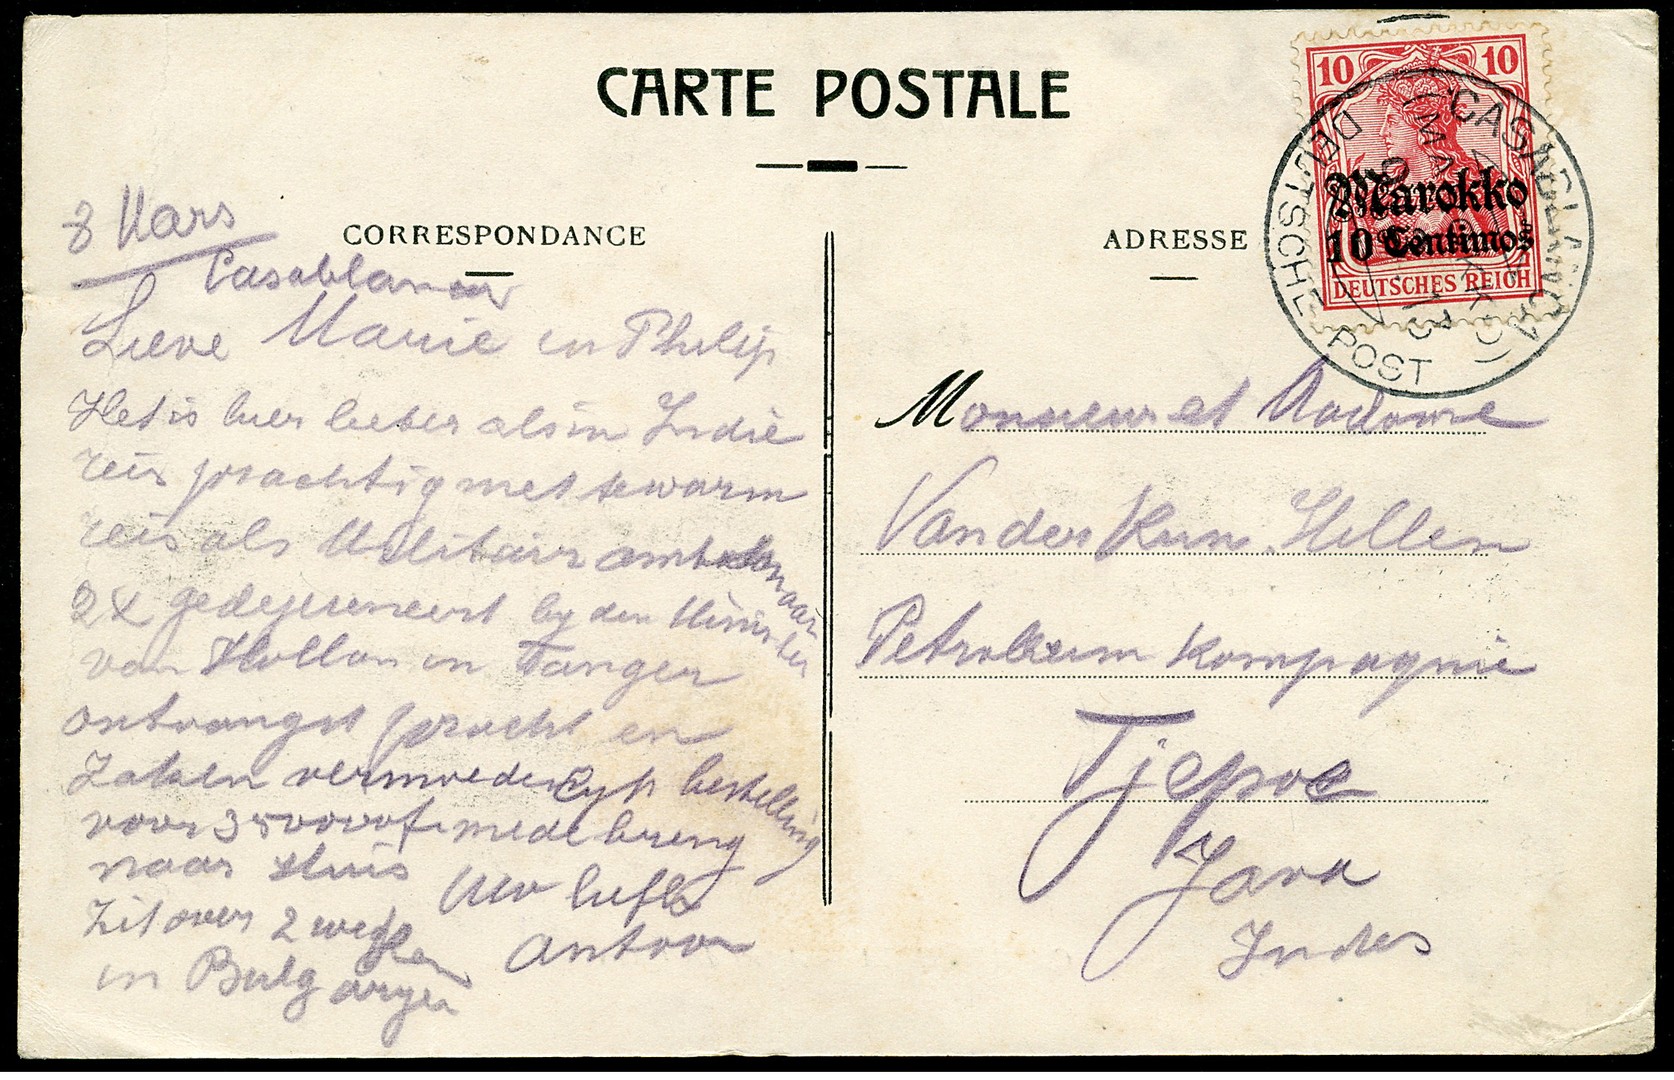 CARTE POSTALE
CORRESPONDANCE
ADRESSE
10 10
Marokko
10 Centimos
DEUTSCHES REICH
CASABLANCA
(MAROKKO)
DEUTSCHE POST
8 Mars
Casablanca
Lieve Marie en Philip
Het is hier beter als in Indie
reis prachtig met te warm
reis als Militair ambtenaar
2 x gedejeuneerd by den Minister
van Hollan in Tanger
ontvangst pracht en
Zaken vermoedelyk bestelling
voor 350000 f. mede breng
naar Huis
Uw liefh
Zit over 2 weken
Antoon
in Bulgaryen
Monsieur et Madame
Van der Kun Hillen
Petroleum Kompagnie
Tjepoe
Java
Indes